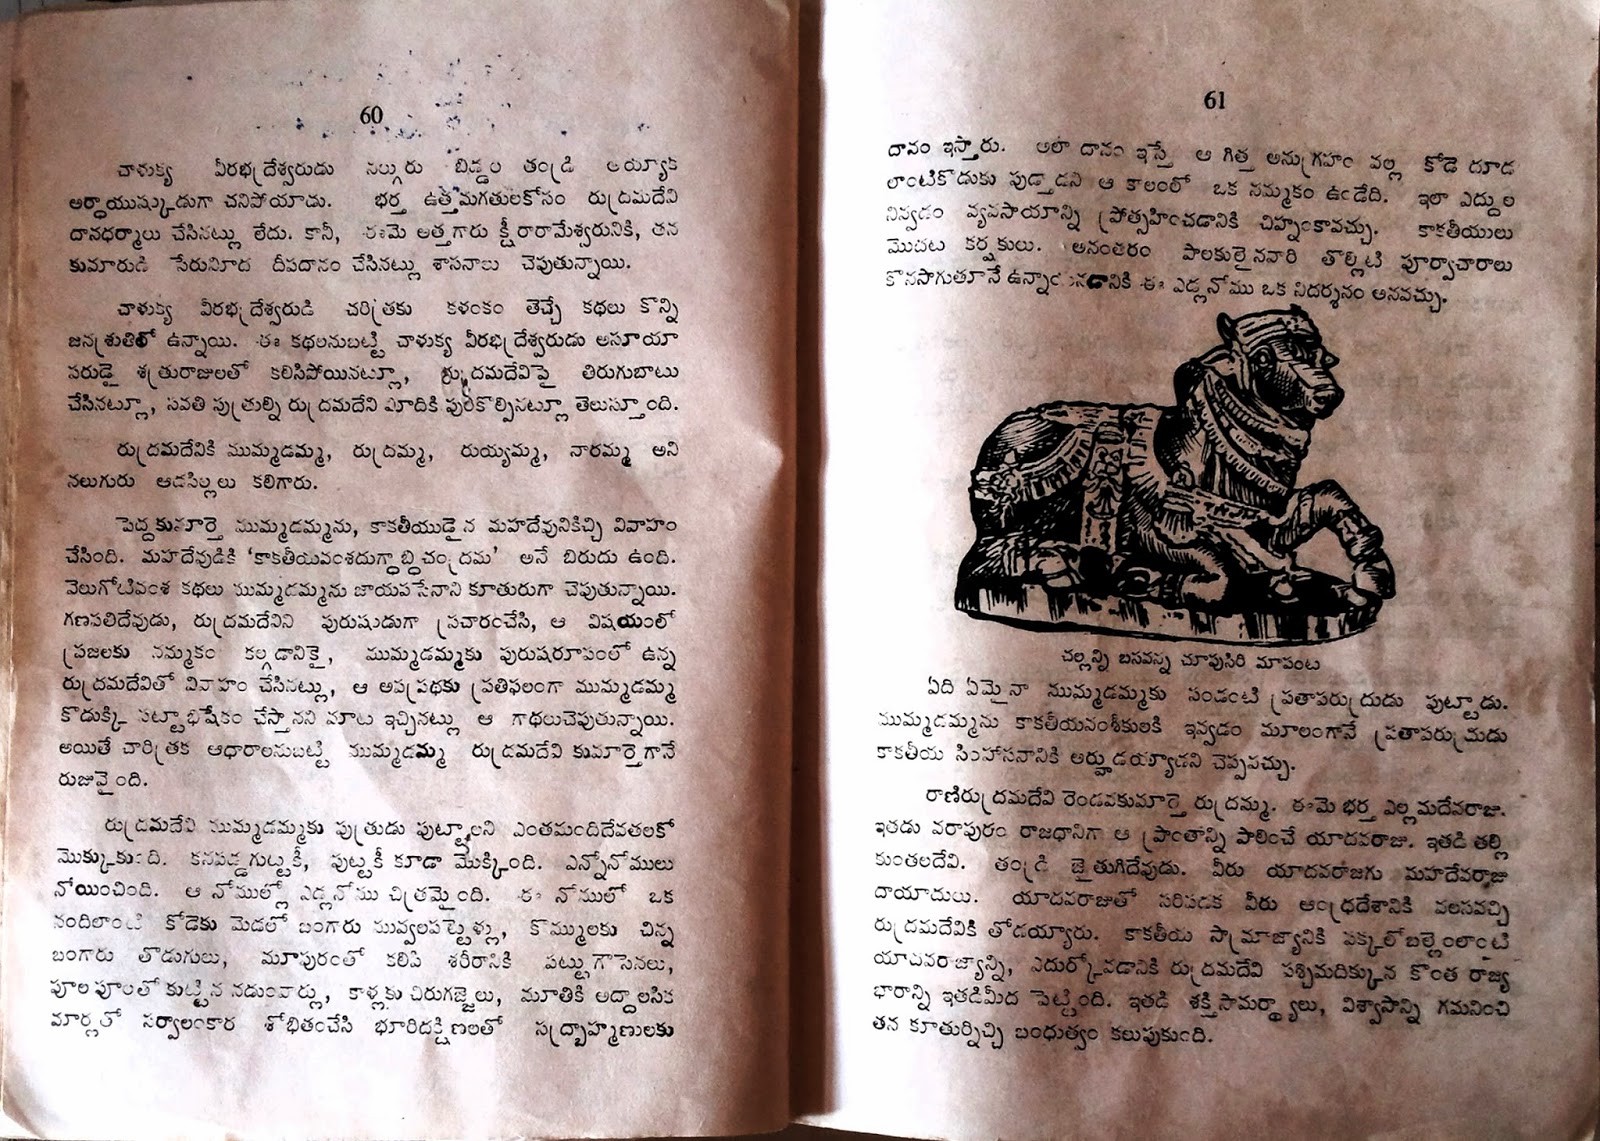 60
చాళుక్య వీరభద్రేశ్వరుడు నల్గురు బిడ్డల తండ్రి అయ్యాక
అర్ధాయుష్కుడుగా చనిపోయాడు. భర్త ఉత్తమగతులకోసం రుద్రమదేవి
దానధర్మాలు చేసినట్లు లేదు. కానీ, ఈమె అత్తగారు క్షీరారామేశ్వరునికి, తన
కుమారుడి పేరుమీద దీపదానం చేసినట్లు శాసనాలు చెపుతున్నాయి.
చాళుక్య వీరభద్రేశ్వరుడి చరిత్రకు కళంకం తెచ్చే కథలు కొన్ని
జనశ్రుతిలో ఉన్నాయి. ఈ కథలనుబట్టి చాళుక్య వీరభద్రేశ్వరుడు అసూయా
పరుడై శత్రురాజులతో కలిసిపోయినట్లూ, రుద్రమదేవిపై తిరుగుబాటు
చేసినట్లూ, సవతి పుత్రుల్ని రుద్రమదేవి మీదికి పురికొల్పినట్లూ తెలుస్తూంది.
రుద్రమదేవికి ముమ్మడమ్మ, రుద్రమ్మ, రుయ్యమ్మ, నారమ్మ అని
నలుగురు ఆడపిల్లలు కలిగారు.
పెద్దకుమార్తె ముమ్మడమ్మను, కాకతీయుడైన మహదేవునికిచ్చి వివాహం
చేసింది. మహదేవుడికి ‘కాకతీయవంశదుగ్ధాబ్ధిచంద్రమ’ అనే బిరుదు ఉంది.
వెలుగోటివంశ కథలు ముమ్మడమ్మను జాయపసేనాని కూతురుగా చెపుతున్నాయి.
గణపతిదేవుడు, రుద్రమదేవిని పురుషుడుగా ప్రచారంచేసి, ఆ విషయంలో
ప్రజలకు నమ్మకం కల్గడానికై, ముమ్మడమ్మకు పురుషరూపంలో ఉన్న
రుద్రమదేవితో వివాహం చేసినట్లు, ఆ అపప్రథకు ప్రతిఫలంగా ముమ్మడమ్మ
కొడుక్కి పట్టాభిషేకం చేస్తానని మాట ఇచ్చినట్లు ఆ గాథలుచెపుతున్నాయి.
అయితే చారిత్రక ఆధారాలనుబట్టి ముమ్మడమ్మ రుద్రమదేవి కుమార్తెగానే
రుజువైంది.
రుద్రమదేవి ముమ్మడమ్మకు పుత్రుడు పుట్టాలని ఎంతమందిదేవతలకో
మొక్కుకుంది. కనపడ్డగుట్టకీ, పుట్టకీ కూడా మొక్కింది. ఎన్నోనోములు
నోయించింది. ఆ నోముల్లో ఎడ్లనోము చిత్రమైంది. ఈ నోములో ఒక
నందిలాంటి కోడెకు మెడలో బంగారు మువ్వలపట్టెళ్లు, కొమ్ములకు చిన్న
బంగారు తొడుగులు, మూపురంతో కలిపి శరీరానికి పట్టుగౌసెనలు,
పూలపూలతో కుట్టిన నడుంవార్లు, కాళ్లకు చిరుగజ్జెలు, మూతికి అద్దాలసిక
మార్లతో సర్వాలంకార శోభితంచేసి భూరిదక్షిణలతో సద్బ్రాహ్మణులకు
61
దానం ఇస్తారు. అలా దానం ఇస్తే ఆ గిత్త అనుగ్రహం వల్ల కోడె దూడ
లాంటికొడుకు పుడ్తాడని ఆ కాలంలో ఒక నమ్మకం ఉండేది. ఇలా ఎద్దుల
నివ్వడం వ్యవసాయాన్ని ప్రోత్సహించడానికి చిహ్నంకావచ్చు. కాకతీయులు
మొదట కర్షకులు. అనంతరం పాలకులైనవారి తొల్లిటి పూర్వాచారాలు
కొనసాగుతూనే ఉన్నాయనడానికి ఈ ఎడ్లనోము ఒక నిదర్శనం అనవచ్చు.
చల్లన్ని బసవన్న చూపుసిరి మాపంట
ఏది ఏమైనా ముమ్మడమ్మకు పండంటి ప్రతాపరుద్రుడు పుట్టాడు.
ముమ్మడమ్మను కాకతీయవంశీకులకి ఇవ్వడం మూలంగానే ప్రతాపరుద్రుడు
కాకతీయ సింహాసనానికి అర్హుడయ్యాడని చెప్పవచ్చు.
రాణిరుద్రమదేవి రెండవకుమార్తె రుద్రమ్మ. ఈమె భర్త ఎల్లమదేవరాజు.
ఇతడు వరాపురం రాజధానిగా ఆ ప్రాంతాన్ని పాలించే యాదవరాజు. ఇతడి తల్లి
కుంతలదేవి. తండ్రి జైతుగిదేవుడు. వీరు యాదవరాజగు మహదేవరాజు
దాయాదులు. యాదవరాజుతో సరిపడక వీరు ఆంధ్రదేశానికి వలసవచ్చి
రుద్రమదేవికి తోడయ్యారు. కాకతీయ సామ్రాజ్యానికి పక్కలోబల్లెంలాంటి
యాదవరాజ్యాన్ని, ఎదుర్కోవడానికి రుద్రమదేవి పశ్చిమదిక్కున కొంత రాజ్య
భారాన్ని ఇతడిమీద పెట్టింది. ఇతడి శక్తిసామర్థ్యాలు, విశ్వాసాన్ని గమనించి
తన కూతుర్నిచ్చి బంధుత్వం కలుపుకుంది.